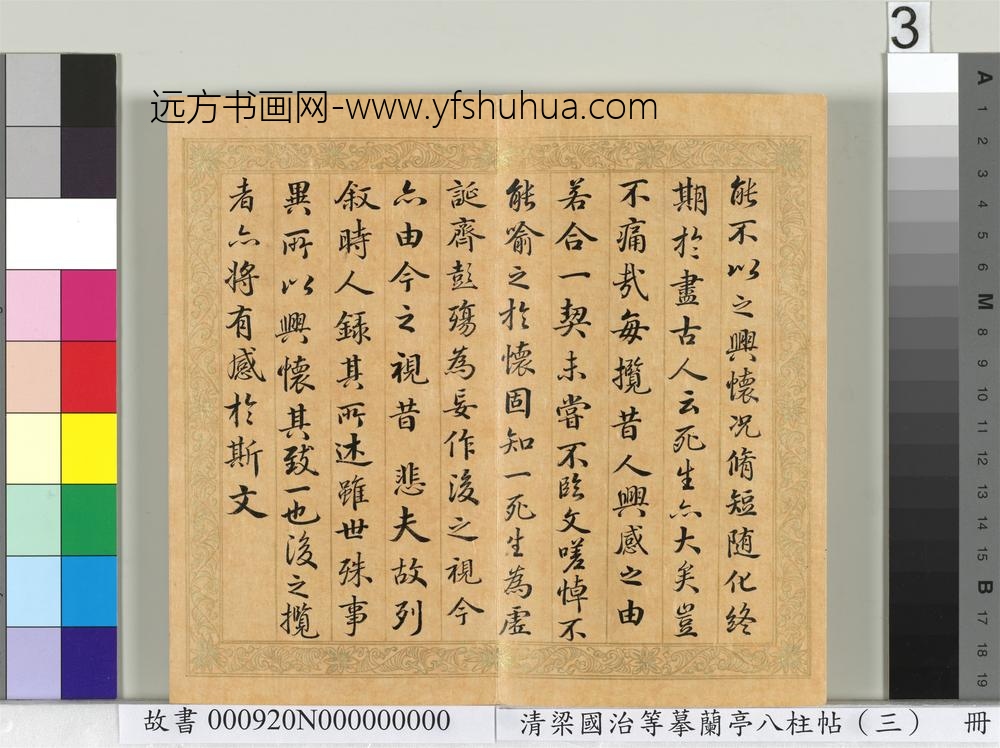 3
远方书画网-www.yfshuhua.com
能不以之興懷况脩短随化終
期於盡古人云死生亦大矣豈
不痛哉每攬昔人興感之由
若合一契未嘗不臨文嗟悼不
能喻之於懷固知一死生為虛
誕齊彭殤為妄作後之視今
亦由今之視昔 悲夫故列
叙時人錄其所述雖世殊事
異所以興懷其致一也後之攬
者亦將有感於斯文
A
1
2
3
4
5
6
M
8
9
10
11
12
13
14
15
B
17
18
19
故書 000920N000000000
清梁國治等摹蘭亭八柱帖（三） 冊